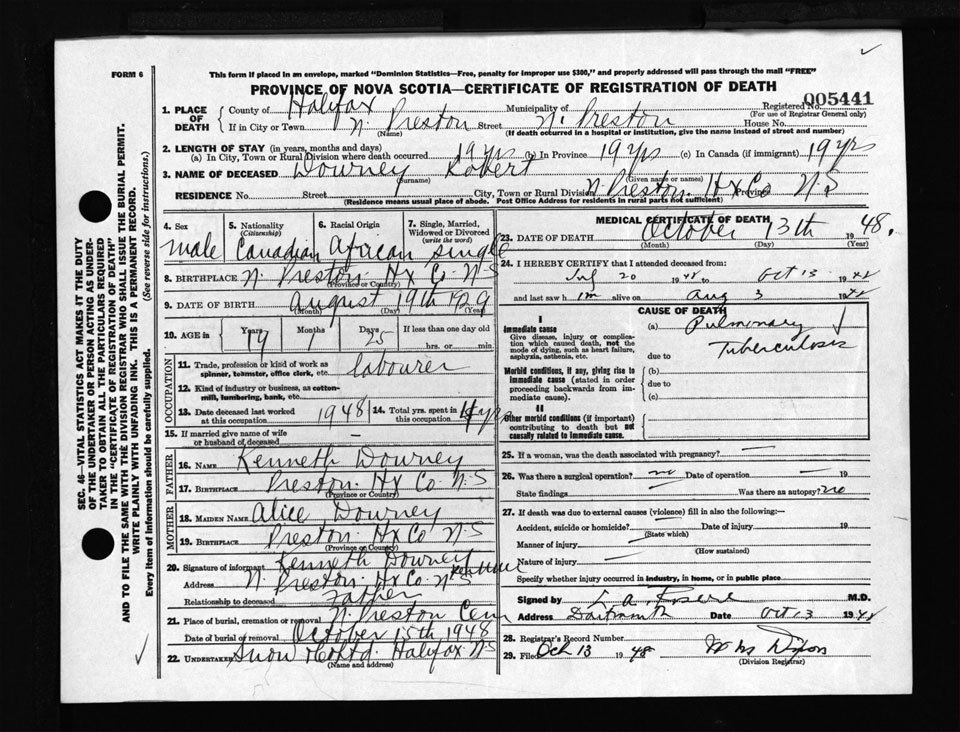 FORM 6
This form if placed in an envelope, marked "Dominion Statistics—Free, penalty for improper use $300," and properly addressed will pass through the mail "FREE"
PROVINCE OF NOVA SCOTIA—CERTIFICATE OF REGISTRATION OF DEATH
Registered No. 005441
(For use of Registrar General only)
1. PLACE OF DEATH { County of Halifax Municipality of
If in City or Town N. Preston Street N. Preston House No.
(Name) (If death occurred in a hospital or institution, give the name instead of street and number)
2. LENGTH OF STAY (in years, months and days)
(a) In City, Town or Rural Division where death occurred 19 yrs (b) in Province 19 yrs (c) In Canada (if immigrant) 19 yrs
3. NAME OF DECEASED Downey Robert
(Surname) (Given name or names)
RESIDENCE No. Street City, Town or Rural Division N. Preston Hx Co Province N-S
(Residence means usual place of abode. Post Office Address for residents in rural parts not sufficient)
4. Sex male
5. Nationality (Citizenship) Canadian
6. Racial Origin African
7. Single, Married, Widowed or Divorced (write the word) single
8. BIRTHPLACE N. Preston Hx Co N-S
(Province or Country)
9. DATE OF BIRTH August 19th 1929
(Month) (Day) (Year)
10. AGE in { Years 19 Months 1 Days 25 If less than one day old
hrs. or min.
OCCUPATION
11. Trade, profession or kind of work as spinner, teamster, office clerk, etc. labourer
12. Kind of industry or business, as cotton-mill, lumbering, bank, etc.
13. Date deceased last worked at this occupation 1948
14. Total yrs. spent in this occupation yrs
15. If married give name of wife or husband of deceased —
FATHER
16. NAME Kenneth Downey
17. BIRTHPLACE Preston Hx Co N-S
(Province or Country)
MOTHER
18. MAIDEN NAME Alice Downey
19. BIRTHPLACE Preston Hx Co N-S
(Province or Country)
20. Signature of informant Kenneth Downey
Address N. Preston Hx Co N-S
Relationship to deceased Father
21. Place of burial, cremation or removal N. Preston Cem
Date of burial or removal October 15th 1948
22. UNDERTAKER Snow & Co Ltd. Halifax N-S
(Name and address)
MEDICAL CERTIFICATE OF DEATH
23. DATE OF DEATH October 13th 1948.
(Month) (Day) (Year)
24. I HEREBY CERTIFY that I attended deceased from:
20 1948 to Oct 13 1948
and last saw him alive on Aug 3 1948
CAUSE OF DEATH
I
Immediate cause (a) Pulmonary Tuberculosis
Give disease, injury or complication which caused death, not the mode of dying, such as heart failure, asphyxia, asthenia, etc.
due to
Morbid conditions, if any, giving rise to immediate cause (stated in order proceeding backwards from immediate cause).
(b)
due to
(c)
II
Other morbid conditions (if important) contributing to death but not causally related to immediate cause.
25. If a woman, was the death associated with pregnancy? —
26. Was there a surgical operation? no Date of operation — 19
State findings — Was there an autopsy? no
27. If death was due to external causes (violence) fill in also the following:—
Accident, suicide or homicide? Date of injury 19
(State which)
Manner of injury
(How sustained)
Nature of injury
Specify whether injury occurred in industry, in home, or in public place
Signed by M.D.
Address Dartmouth Date Oct 13 1948
28. Registrar's Record Number
29. Filed Oct 13 1948 Dixon
(Division Registrar)
SEC. 46—VITAL STATISTICS ACT MAKES IT THE DUTY
OF THE UNDERTAKER OR PERSON ACTING AS UNDER-
TAKER TO OBTAIN ALL THE PARTICULARS REQUIRED
IN THE "CERTIFICATE OF REGISTRATION OF DEATH"
AND TO FILE THE SAME WITH THE DIVISION REGISTRAR WHO SHALL ISSUE THE BURIAL PERMIT.
WRITE PLAINLY WITH UNFADING INK. THIS IS A PERMANENT RECORD.
Every item of information should be carefully supplied. (See reverse side for instructions.)